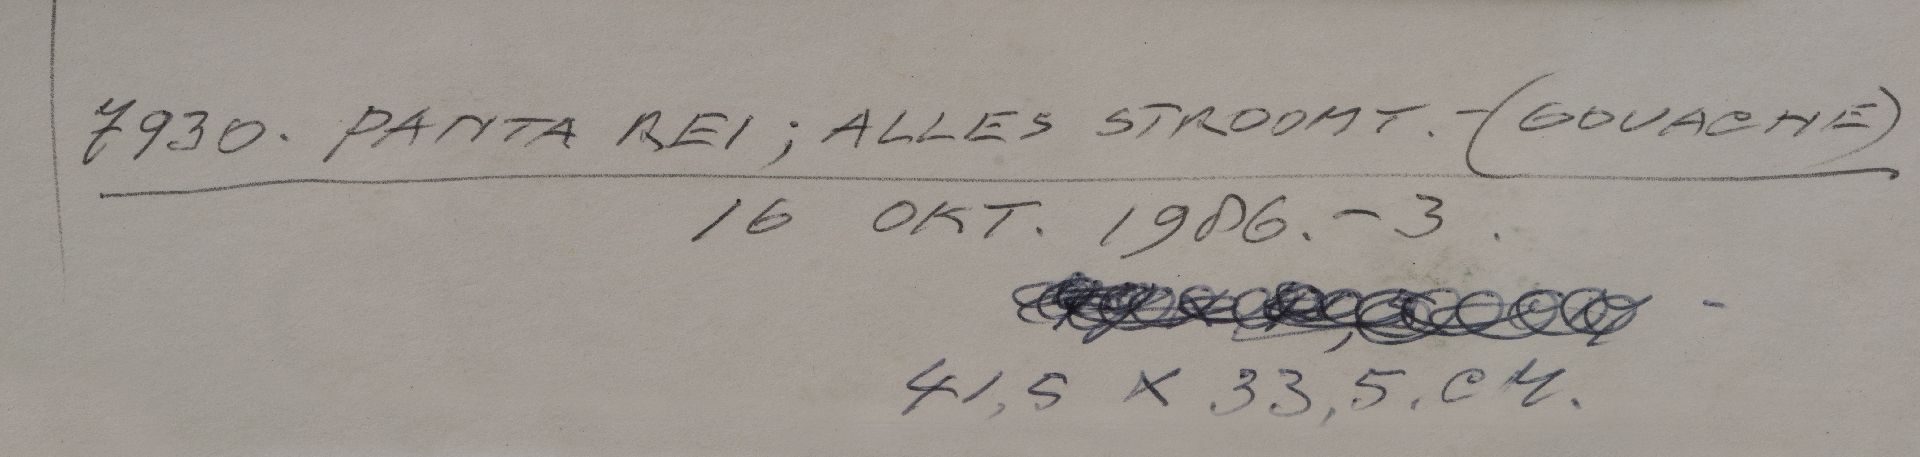 7930. PANTA REI; ALLES STROOMT. - (GOUACHE)
16 OKT. 1986. - 3.
-
41,5 X 33,5. CM.